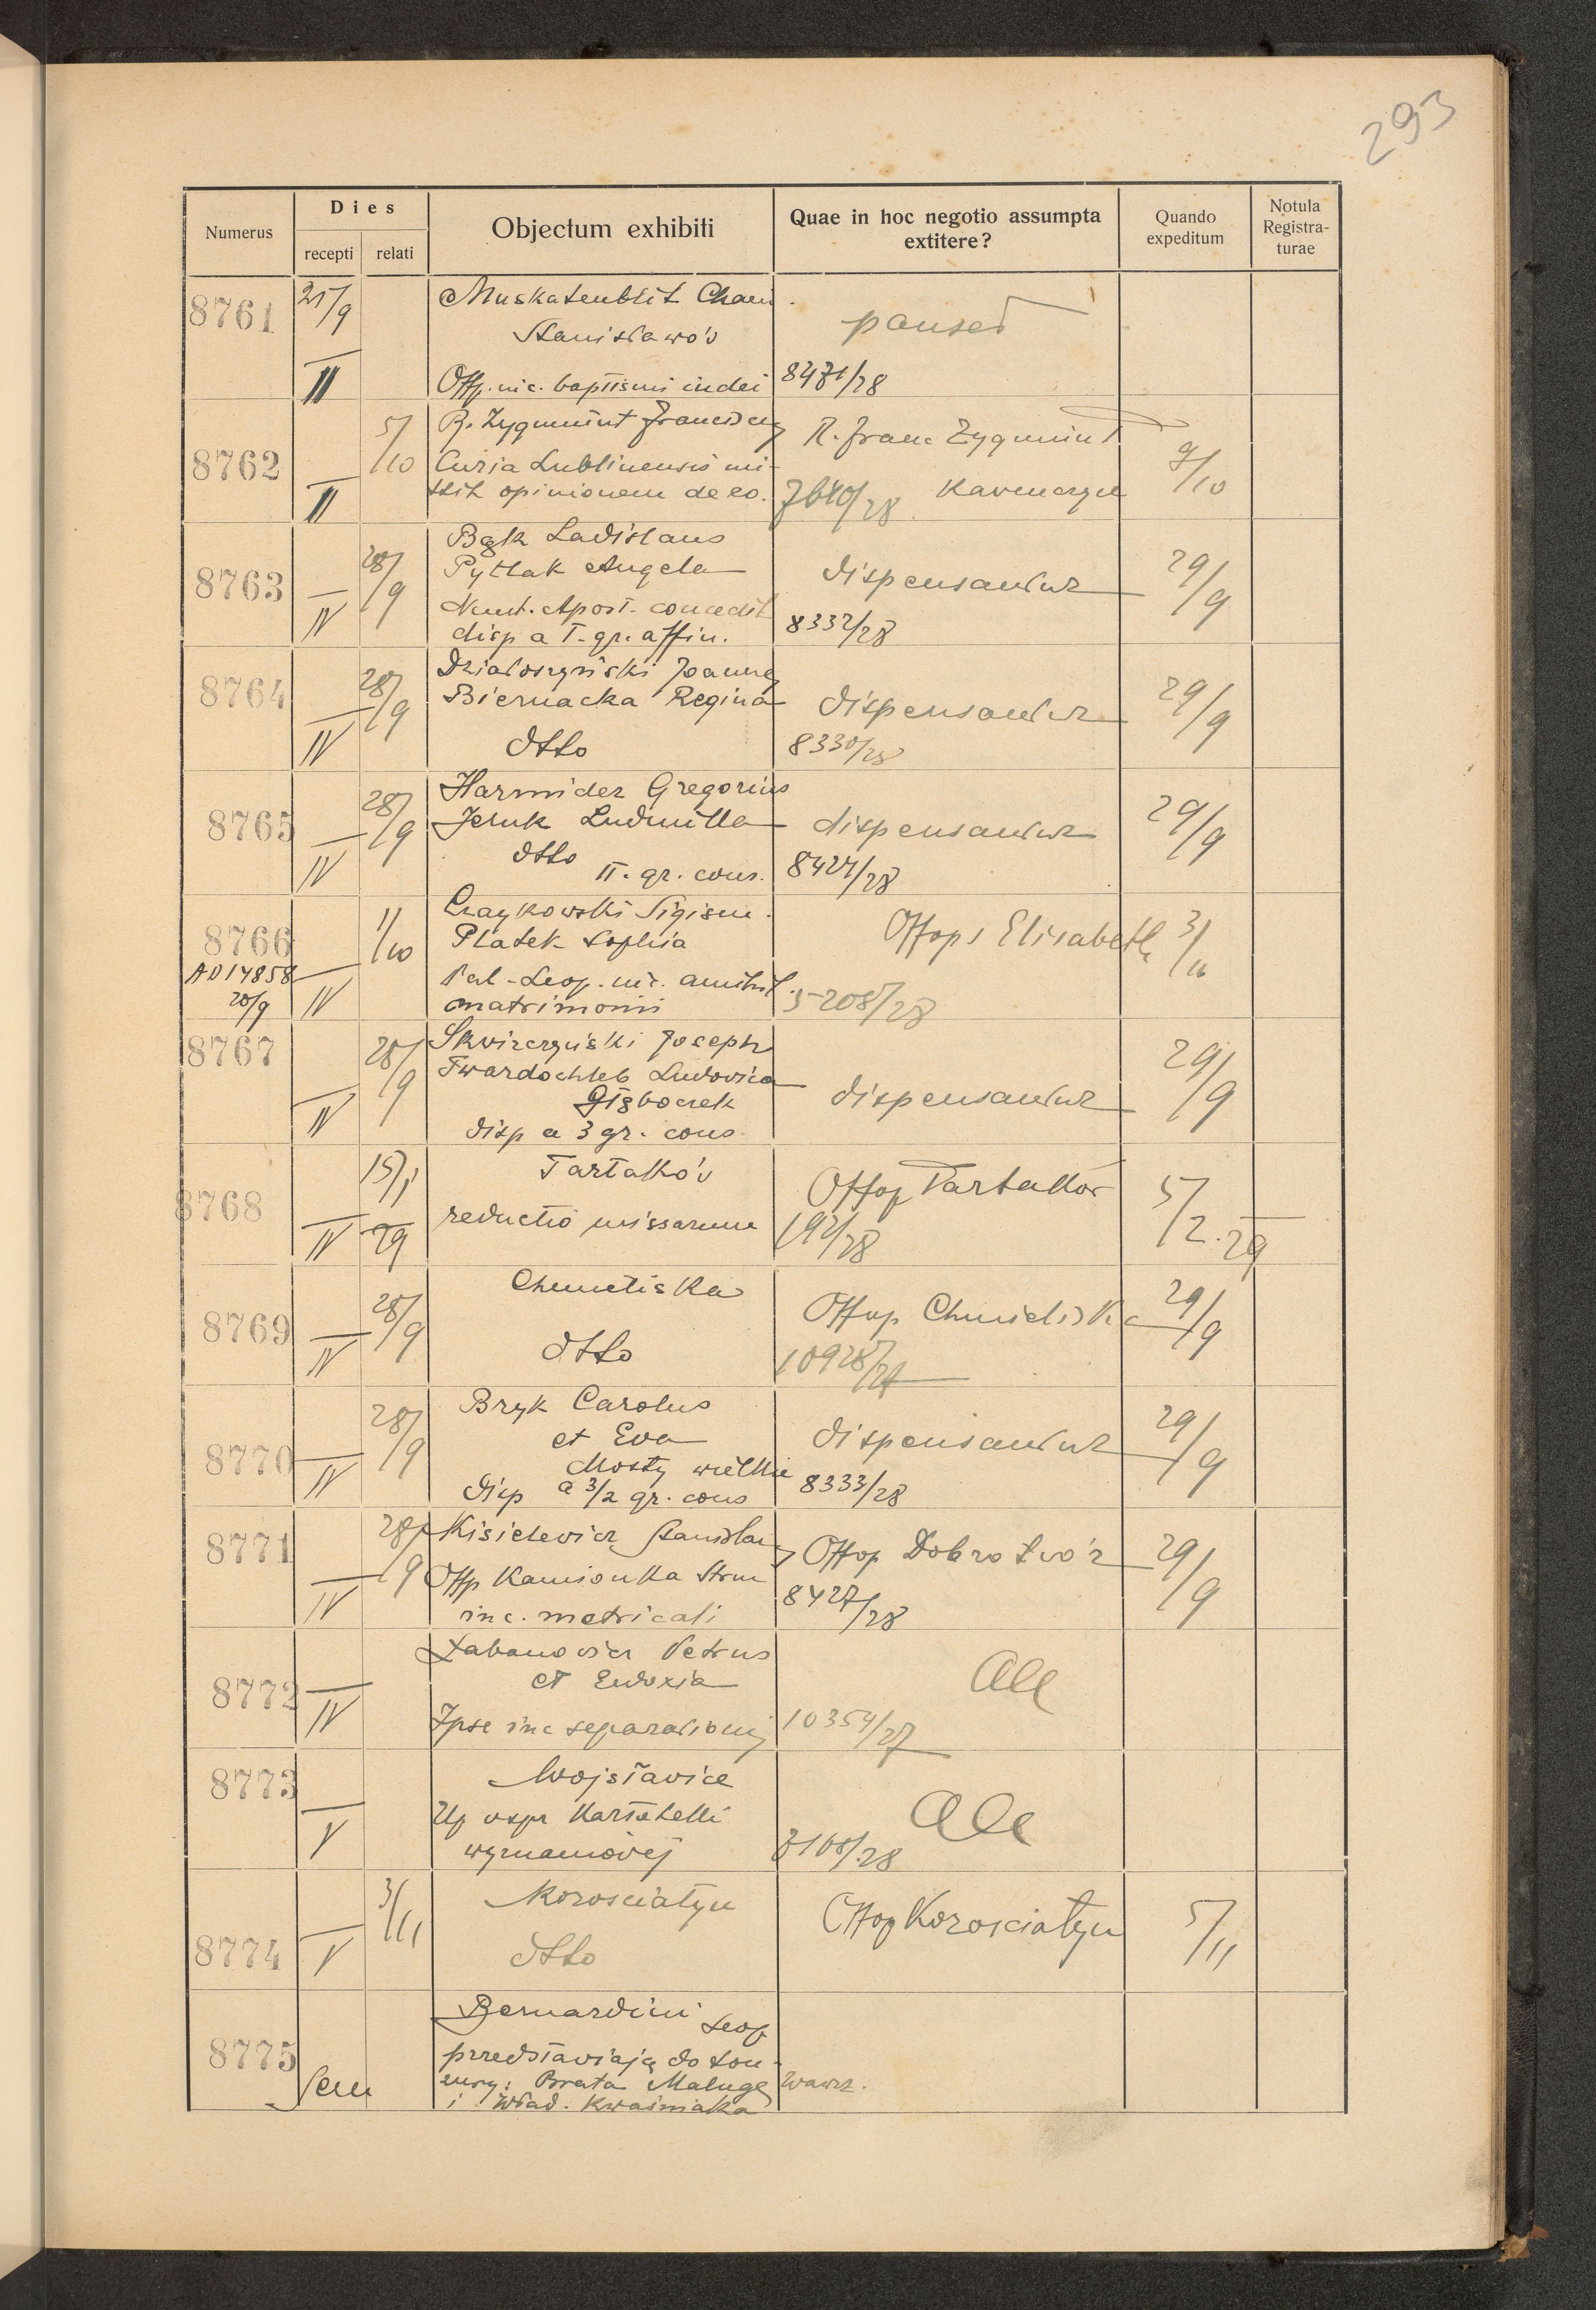 293
Numerus
Dies
recepti
relati
Objectum exhibiti
Quae in hoc negotio assumpta
extitere?
Quando
expeditum
Notula
Registra-
turae
8761
25/9
III
Muskatenblit
Stanisławów
Offp. inc. baptismi iudei
pauset
8471/28
8762
II
5/10
R. Zygmunt Franciscus
Curia Lublinensis mi-
ttit opinionem de eo.
R. Franc Zygmunt
7640/28
9/10
8763
IV
28/9
Bąk Ladislaus
Pytlak Angela
Nunt. Apost. concedit
disp a I. gr. affin.
dispensantur
8332/28
29/9
8764
IV
28/9
Działoszyński Joannes
Biernacka Regina
dtto
dispensantur
8330/28
29/9
8765
IV
28/9
Harmider Gregorius
Jeruk Ludmilla
dtto
II. gr. cons.
dispensantur
8424/28
29/9
8766
AD 14858
20/9
IV
1/10
Czaykowski Sigism.
Płatek Sophia
matrimonii
Offop S Elisabeth
5208/28
8767
IV
28/9
Skwirczyński Joseph
Twardochleb Ludovica
Głęboczek
disp a 3 gr. cons.
dispensantur
29/9
8768
IV
15/1
29
Tartaków
reductio missarum
Offop Tartaków
192/28
5/2.29
8769
IV
28/9
Chmeliska
dtto
Offop Chmieliska
10928/27
29/9
8770
IV
28/9
Bryk Carolus
et Eva
Mosty wielkie
disp a 3/2 gr. cons
dispensantur
8333/28
29/9
8771
IV
28/9
Kisielewicz Stanislaus
Offp Kamionka Strum
inc. metricali
Offop Dobrotwór
8427/28
29/9
8772
IV
Łabanowicz Petrus
et Eudoxia
Ipse inc separationis
10354/27
8773
V
Wojsławice
wyznaniowej
3108/28
8774
V
3/11
Korościatyn
dtto
Offop Korościatyn
5/11
8775
Sem
Bernardini Leop
przedstawiają do ton-
sury: Brata Malugę Wawrz.
i Wład. Kwaśniaka